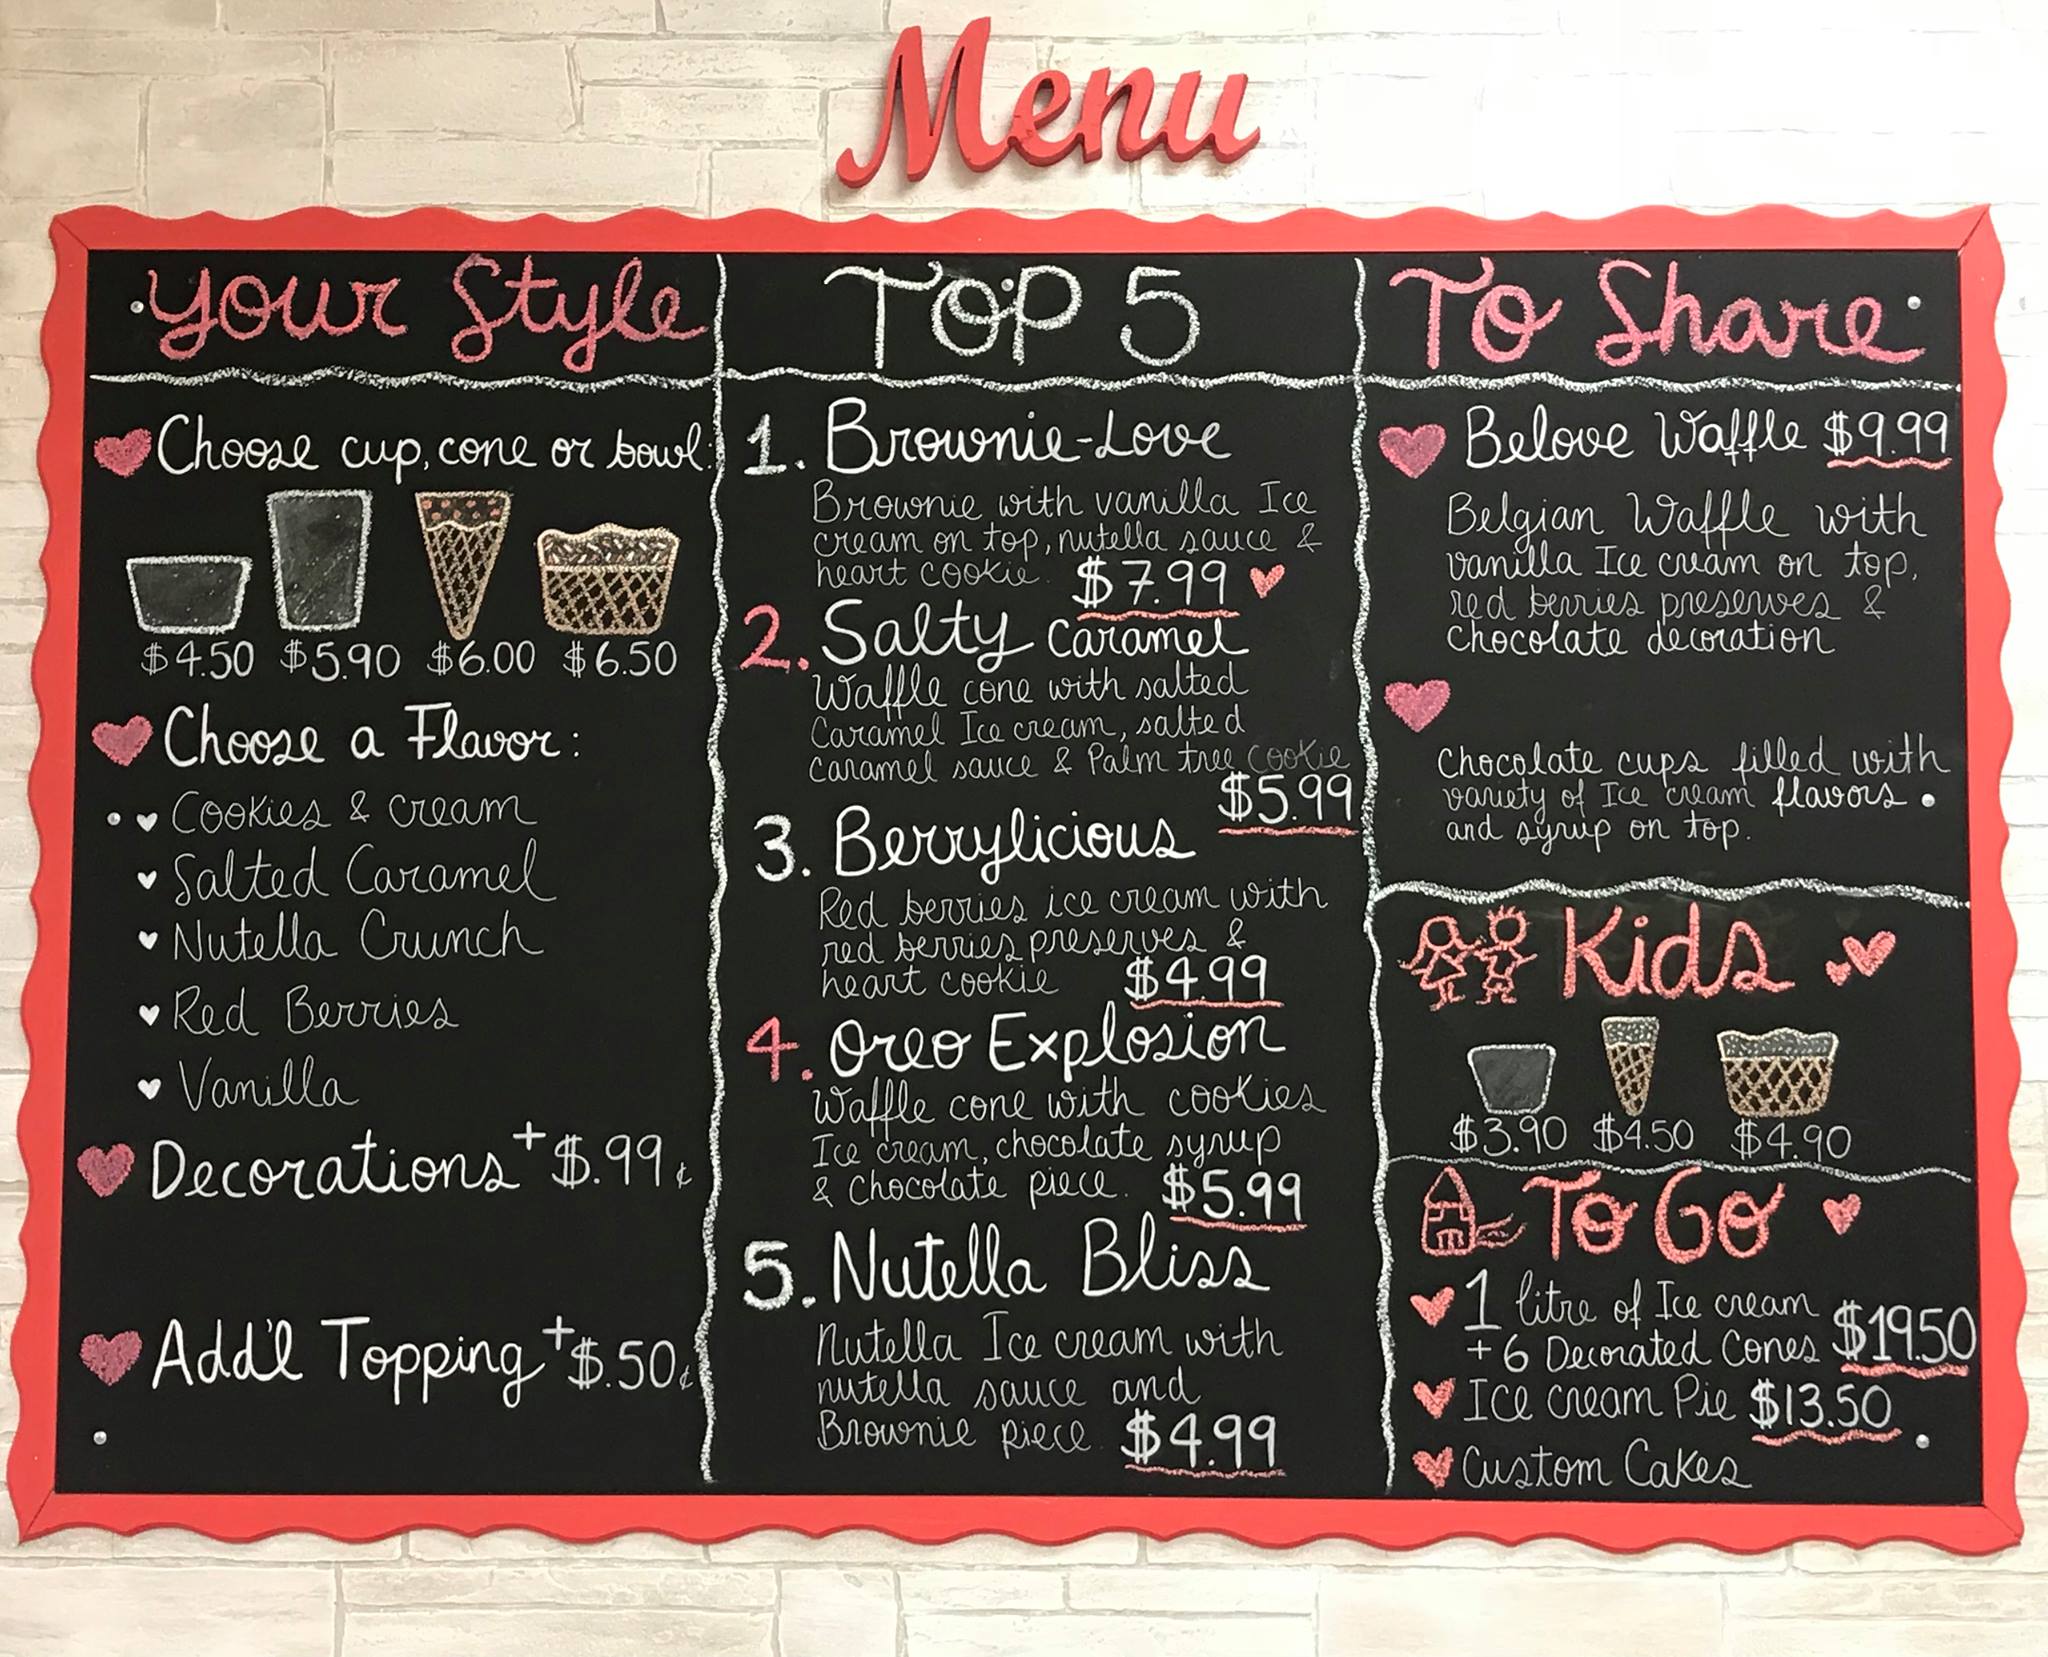 Menu
Your Style
Choose cup, cone or bowl:
$4.50 $5.90 $6.00 $6.50
Choose a Flavor:
Cookies & cream
Salted Caramel
Nutella Crunch
Red Berries
Vanilla
Decorations +$.99¢
Add'l Topping +$.50¢
TOP 5
1. Brownie-Love
Brownie with vanilla Ice
cream on top, nutella sauce &
heart cookie. $7.99
2. Salty Caramel
Waffle cone with salted
Caramel Ice cream, salted
caramel sauce & Palm tree cookie
$5.99
3. Berrylicious
Red berries ice cream with
red berries preserves &
heart cookie $4.99
4. Oreo Explosion
Waffle cone with cookies
Ice cream, chocolate syrup
& chocolate piece. $5.99
5. Nutella Bliss
Nutella Ice cream with
nutella sauce and
Brownie piece. $4.99
To Share
Belove Waffle $9.99
Belgian Waffle with
vanilla Ice cream on top,
red berries preserves &
chocolate decoration
Chocolate cups filled with
variety of Ice cream flavors
and syrup on top.
Kids
$3.90 $4.50 $4.90
To Go
1 litre of Ice cream
+ 6 Decorated Cones $19.50
Ice cream Pie $13.50
Custom Cakes